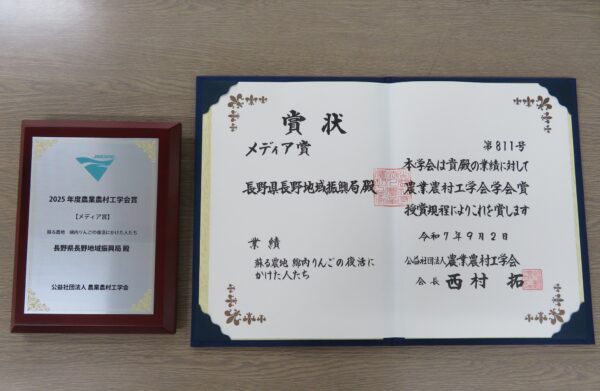 2025年度農業農村工学会賞
【メディア賞】
蘇る農地 綿内りんごの復活にかけた人たち
長野県長野地域振興局 殿
公益社団法人 農業農村工学会
賞状
メディア賞
長野県長野地域振興局 殿
業績
蘇る農地 綿内りんごの復活に
かけた人たち
第811号
本学会は貴殿の業績に対して
農業農村工学会学会賞
授賞規程によりこれを賞します
令和7年9月2日
公益社団法人 農業農村工学会
会長 西村 拓